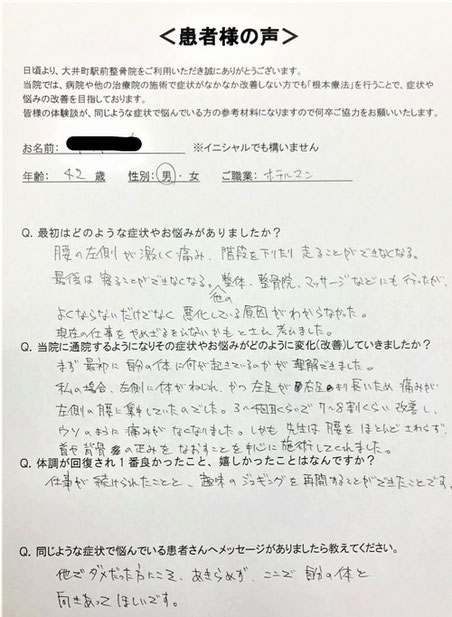 ＜患者様の声＞
日頃より、大井町駅前整骨院をご利用いただき誠にありがとうございます。
当院では、病院や他の治療院の施術で症状がなかなか改善しない方でも「根本療法」を行うことで、症状や
悩みの改善を目指しております。
皆様の体験談が、同じような症状で悩んでいる方の参考材料になりますので何卒ご協力をお願いいたします。
お名前： ※イニシャルでも構いません
年齢： 42 歳 性別：男・女 ご職業： ホテルマン
Q. 最初はどのような症状やお悩みがありましたか？
腰の左側が激しく痛み、階段を下りたり走ることができなくなる。
最後は寝ることができなくなる。整体、整骨院、マッサージなどにも行ったが、
他の
よくならないだけでなく悪化している原因がわからなかった。
現在の仕事をやめざるをえないかもとさえ考えました。
Q. 当院に通院するようになりその症状やお悩みがどのように変化(改善)していきましたか？
まず最初に自分の体に何が起きているのかが理解できました。
私の場合、左側に体がねじれ、かつ左足が右足より長いため痛みが
左側の腰に集中していたのでした。3ヶ月くらいで7〜8割くらい改善し、
ウソのように痛みがなくなりました。しかも先生は腰をほとんどさわらず、
首や背骨の歪みをなおすことを中心に施術してくれました。
Q. 体調が回復され１番良かったこと、嬉しかったことはなんですか？
仕事が続けられたことと、趣味のジョギングを再開することができたことです。
Q. 同じような症状で悩んでいる患者さんへメッセージがありましたら教えてください。
他でダメだった方にこそ、あきらめず、ここで自分の体と
向きあってほしいです。